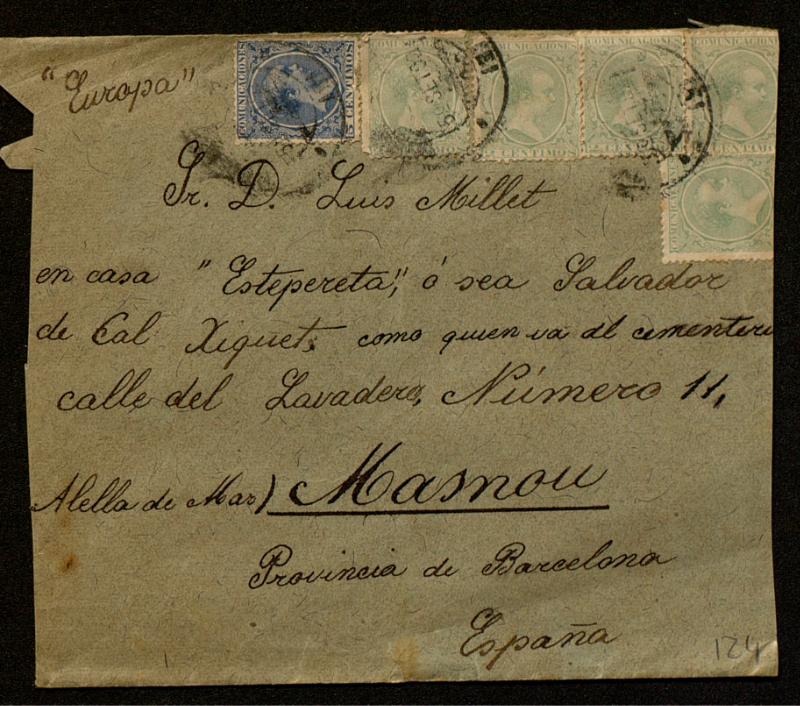 COMUNICACIONES
5 CENTIMOS
COMUNICACIONES
COMUNICACIONES
COMUNICACIONES
COMUNICACIONES
COMUNICA
"Europa"
Sr. D. Luis Millet
en casa "Estepereta", ó sea Salvador
de Cal Xiquet, como quien va al cementeri
calle del Lavadero, Número 11,
Alella de Mar) Masnou
Provincia de Barcelona
España
124